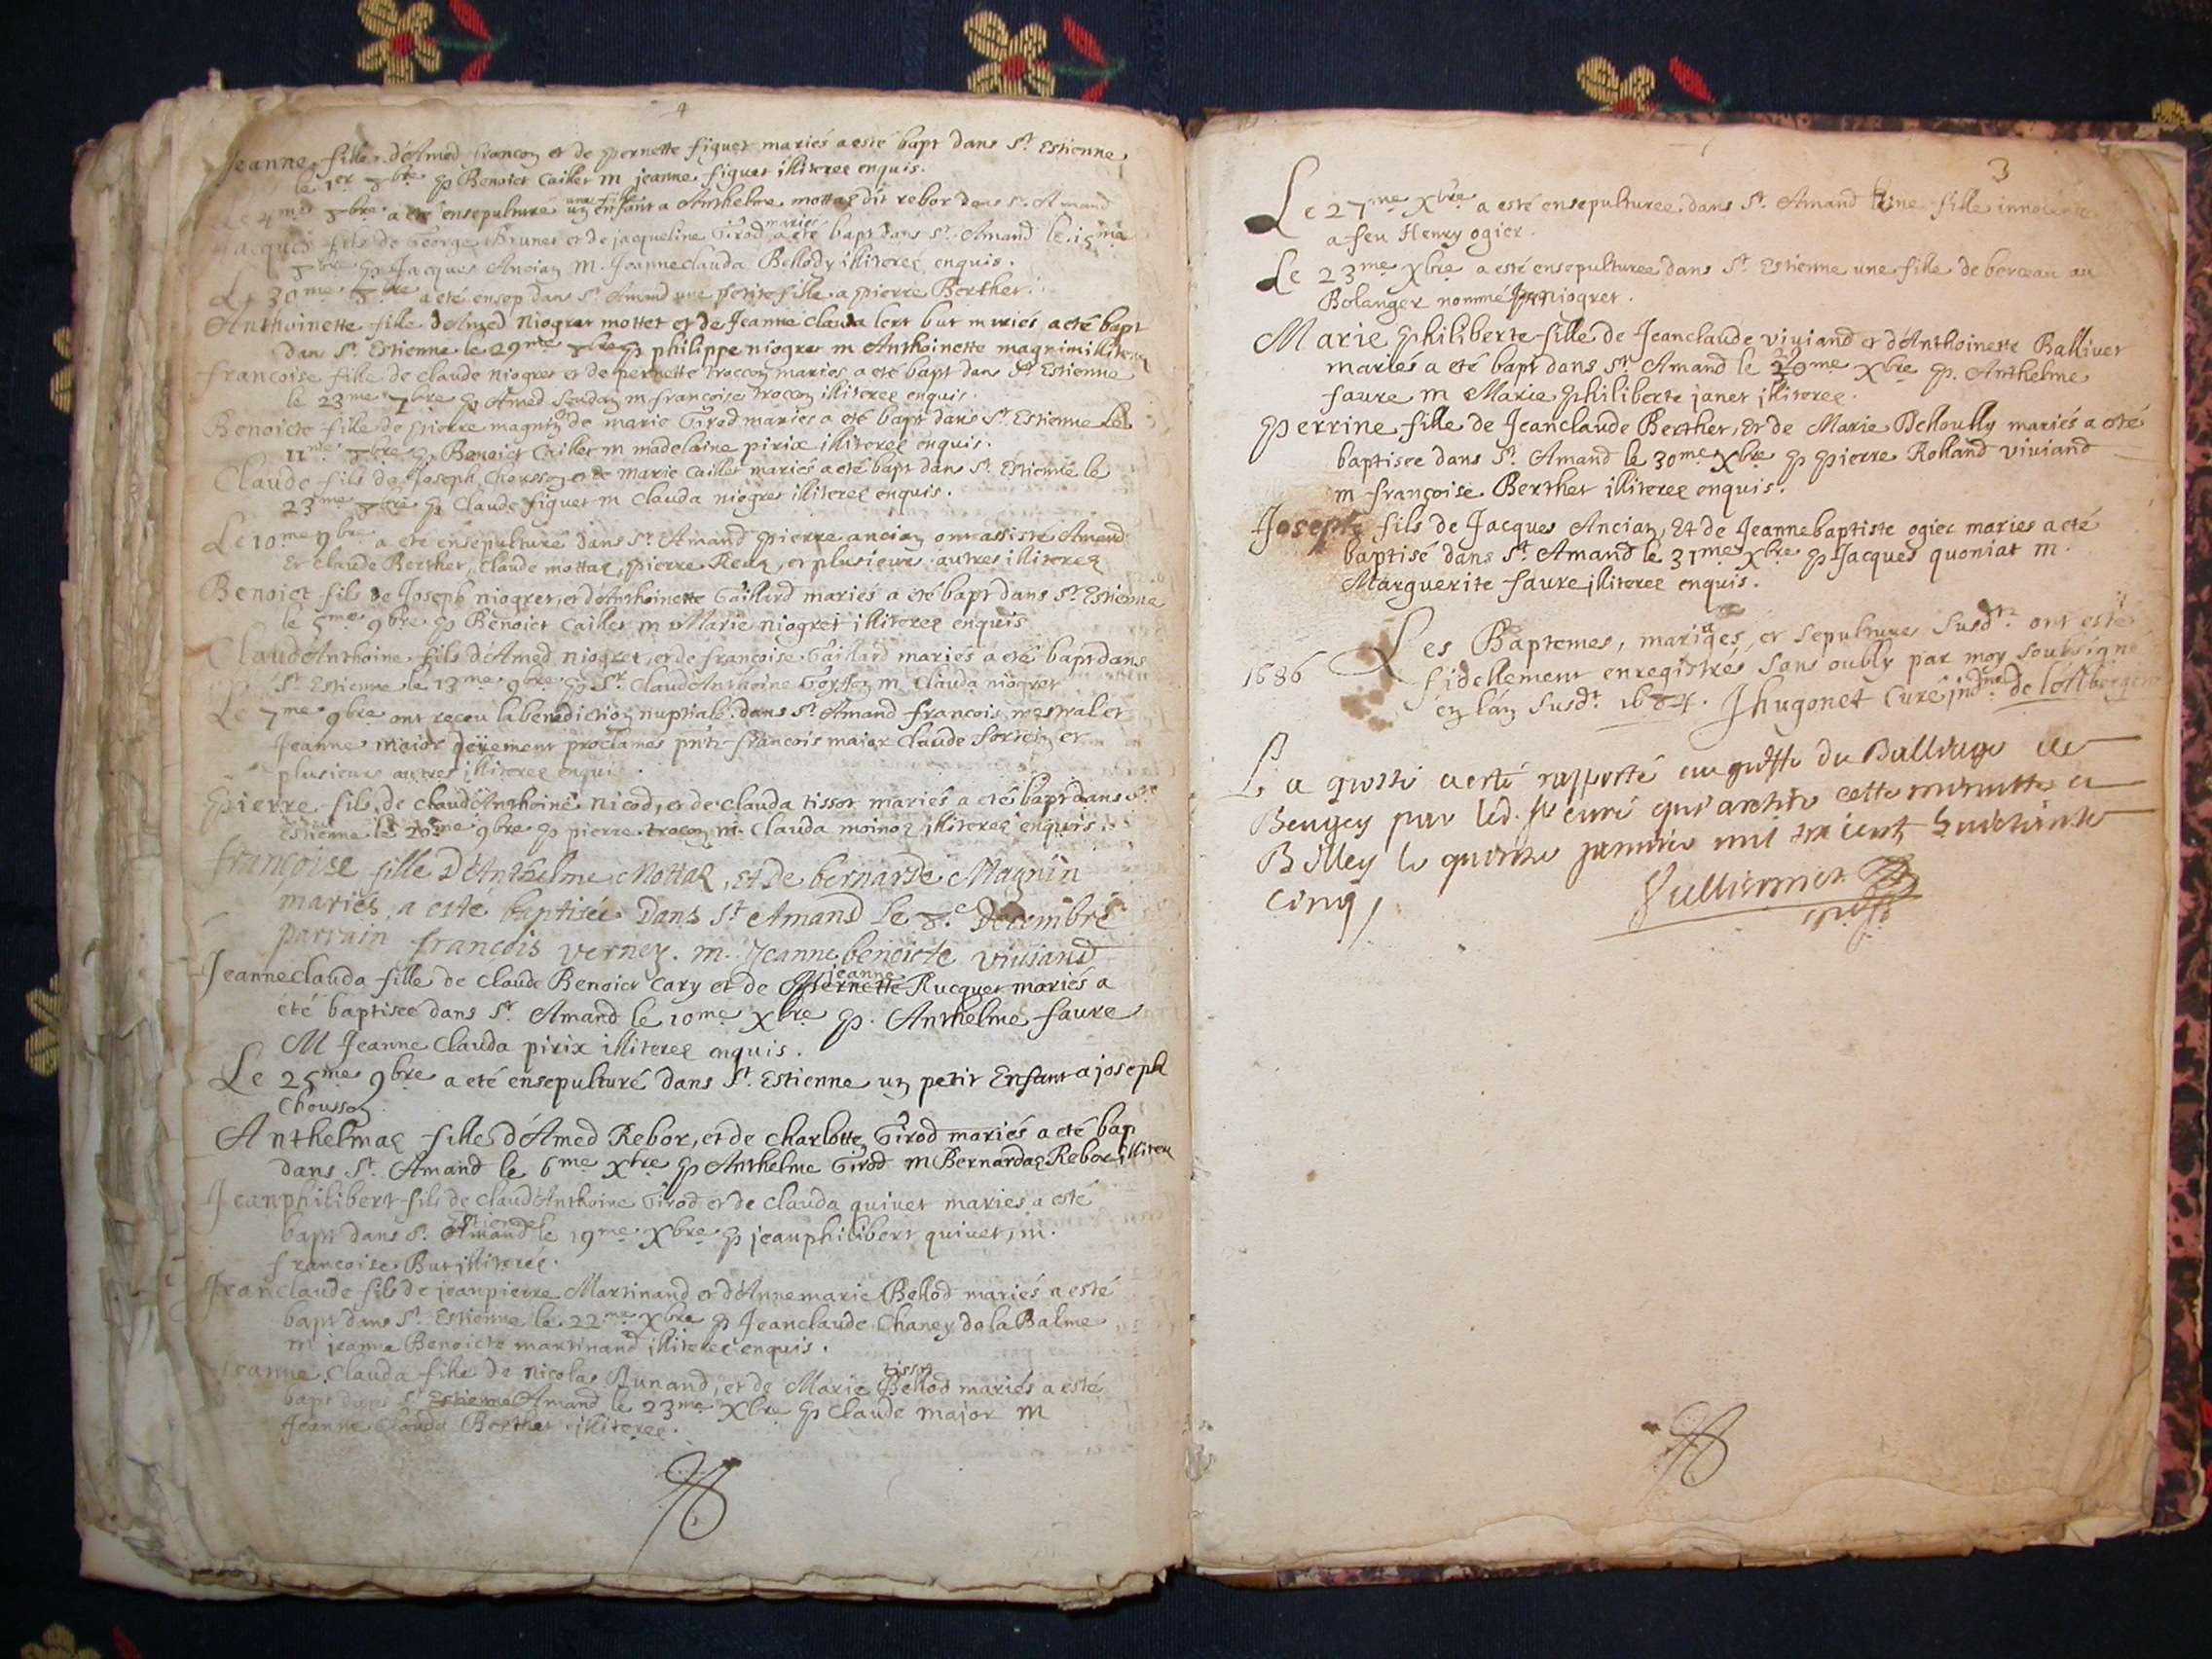 Jeanne fille d'Amed francon et de pernette figuet mariés a esté bapt dans St Estienne
le 1er 8bre p Benoict Caillet m jeanne figuet illiterez enquis.
Le 4me 8bre a eté ensepulturé un enfant a Anthelme mottaz dit rebor dans St Amand
Jacques fils de George Brunet et de jacqueline Girod mariés a eté bapt dans St Amand le 15me
8bre p Jacques Ancian m. Jeanneclauda Bellody illiterez enquis.
Le 30me 8bre a eté ensep dans St Amand une petite fille a pierre Berthet.
Anthoinette fille d'Amed Niogret mottet et de Jeanne Clauda but mariés a eté bapt
dans St Estienne le 29me 8bre p philippe niogret m Anthoinette magnin illiterez
francoise fille de claude niogret et de pernette troccon mariés a eté bapt dans St Estienne
le 23me 7bre p Amed m francoise troccon illiterez enquis.
Benoicte fille de pierre magnin et de marie Girod mariés a eté bapt dans St Estienne Le
11me 8bre p. Benoict Caillet m madelaine pirix illiterez enquis.
Claude fils de Joseph Chousson et de Marie Caillet mariés a eté bapt dans St Estienne le
23me 8bre p Claude figuet m Clauda niogret illiterez enquis.
Le 10me 9bre a eté ensepulturé dans St Amand pierre ancian ont assisté Amand
Et Claude Berthet, Claude mottaz, pierre, et plusieurs autres illiterez
Benoict fils de Joseph niogret, et d'Anthoinette Gaillard mariés a eté bapt dans St Estienne
le 5me 9bre p Benoict Caillet m Marie niogret illiterez enquis
Claud'Anthoine fils d'Amed niogret, et de francoise Gaillard mariés a eté bapt dans
St Estienne le 13me 9bre p Sr Claud'Anthoine m Clauda niogret
Le 7me 9bre ont receu la benediction nuptiale dans St Amand francois mestral et
Jeanne maior proclames pnts francois maior Claude et
plusieurs autres illiterez enquis.
Pierre fils de Claud'Anthoine Nicod, et de Clauda tissot mariés a eté bapt dans St
Estienne le 20me 9bre p pierre trocon m. Clauda moinoz illiterez enquis.
françoise fille d'Anthelme Mottaz, et de bernarde Magnin
mariés, a este baptisée dans St Amand le 8e decembre
parrain francois verney. m. Jeanne benoicte viviand
Jeanneclauda fille de Claude Benoict Cary et de jeanne Rucquet mariés a
été baptisée dans St Amand le 10me Xbre p. Anthelme faure
M Jeanne Clauda pirix illiterez enquis.
Le 25me 9bre a eté ensepulturé dans St Estienne un petit Enfant a joseph
Chousson
Anthelmaz fille d'Amed Rebor, et de Charlotte Girod mariés a eté bap
dans St Amand le 6me Xbre p Anthelme Girod m Bernardaz Rebor illiterez
Jeanphilibert fils de Claud'Anthoine Girod et de Clauda quivet mariés a esté
bapt dans St Estienne le 19me Xbre p jeanphilibert quivet, m.
francoise But illiterez.
Jeanclaude fils de jeanpierre Martinand et d'Annemarie Bellod mariés a esté
bapt dans St Estienne le 22me Xbre p Jeanclaude Chaney de la Balme
m jeanne Benoicte martinand illiterez enquis.
Jeanne Clauda fille de nicolas Runand, et de Marie tissot mariés a esté
bapt dans St Amand le 23me Xbre p Claude major m
Jeanne Clauda Berthet illiterez.
3
Le 27me Xbre a esté ensepulturee dans St Amand une fille innocente
a feu Henry ogier.
Le 23me Xbre a esté ensepulturee dans St Estienne une fille de berceau au
Bolanger nommé niogret.
Marie philiberte fille de Jeanclaude viviand et d'Anthoinette Ballivet
mariés a eté bapt dans St Amand le 29me Xbre p. Anthelme
faure m Marie philiberte janet illiterez.
perrine fille de Jeanclaude Berthet, et de Marie mariés a eté
baptisee dans St Amand le 30me Xbre p pierre Rolland viviand
m françoise Berthet illiterez enquis.
Joseph fils de Jacques Ancian, Et de Jeannebaptiste ogier mariés a eté
baptisé dans St Amand le 31me Xbre p Jacques quoniat m.
Marguerite faure illiterez enquis.
Les Baptemes, mariages, et sepultures susdts ont esté
1686
fidellement enregistrés sans oubly par moy soubsigné
en l'an susdt 1684. Jhugonet Curé indne de l'Albergem
La grosse a esté rapporté au greffe du Balliage de
Beugey par led. Sr curé qui a retiré cette minutte a
Belley le quinze janvier mil six cent huictante
cinq
Vulliermier